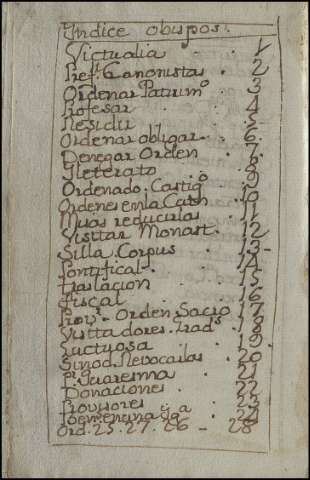 Yndice obispos.
Victualia . 1
Pref.t Canonistas . 2
Ordenar Patrimo 3
Profesar . 4
Residir . 5
Ordenar obligar . 6
Denegar Orden . 7
Yleterato . 8
Ordenado. Castigo . 9
Ordenes en la Cath . 10
Misas reducirlas . 11
Visitar Monast. 12
Silla. Corpus . 13
Pontifical . 14
traslacion . 15
fiscal . 16
Orden Sacro 17
Visitadores . 18
Luctuosa . 19
Sinod. Revocarlas . 20
Quaresma . 21
Donaciones . 22
Provisores . 23
24
Ord. 25. 27. 26 - 28